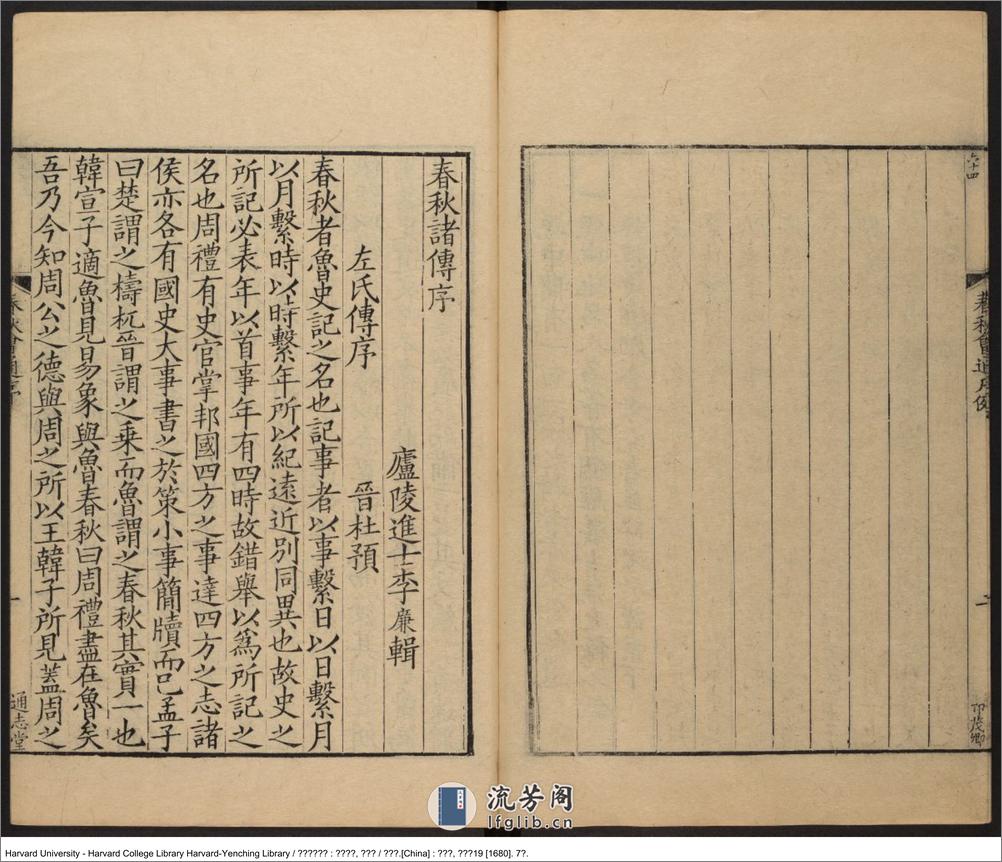 六十四
春秋會通凡例
一
邛茂卿
春秋諸傳序
廬陵進士李廉輯
左氏傳序 晉杜預
春秋者魯史記之名也記事者以事繫日以日繫月
以月繫時以時繫年所以紀遠近別同異也故史之
所記必表年以首事年有四時故錯舉以爲所記之
名也周禮有史官掌邦國四方之事達四方之志諸
侯亦各有國史大事書之於策小事簡牘而已孟子
曰楚謂之檮杌晉謂之乘而魯謂之春秋其實一也
韓宣子適魯見易象與魯春秋曰周禮盡在魯矣
吾乃今知周公之德與周之所以王韓子所見蓋周之
春秋會通序
一
通志堂
流芳阁
lfglib.cn
Harvard University - Harvard College Library Harvard-Yenching Library / ?????? : ????, ??? / ???.[China] : ???, ???19 [1680]. 7?.